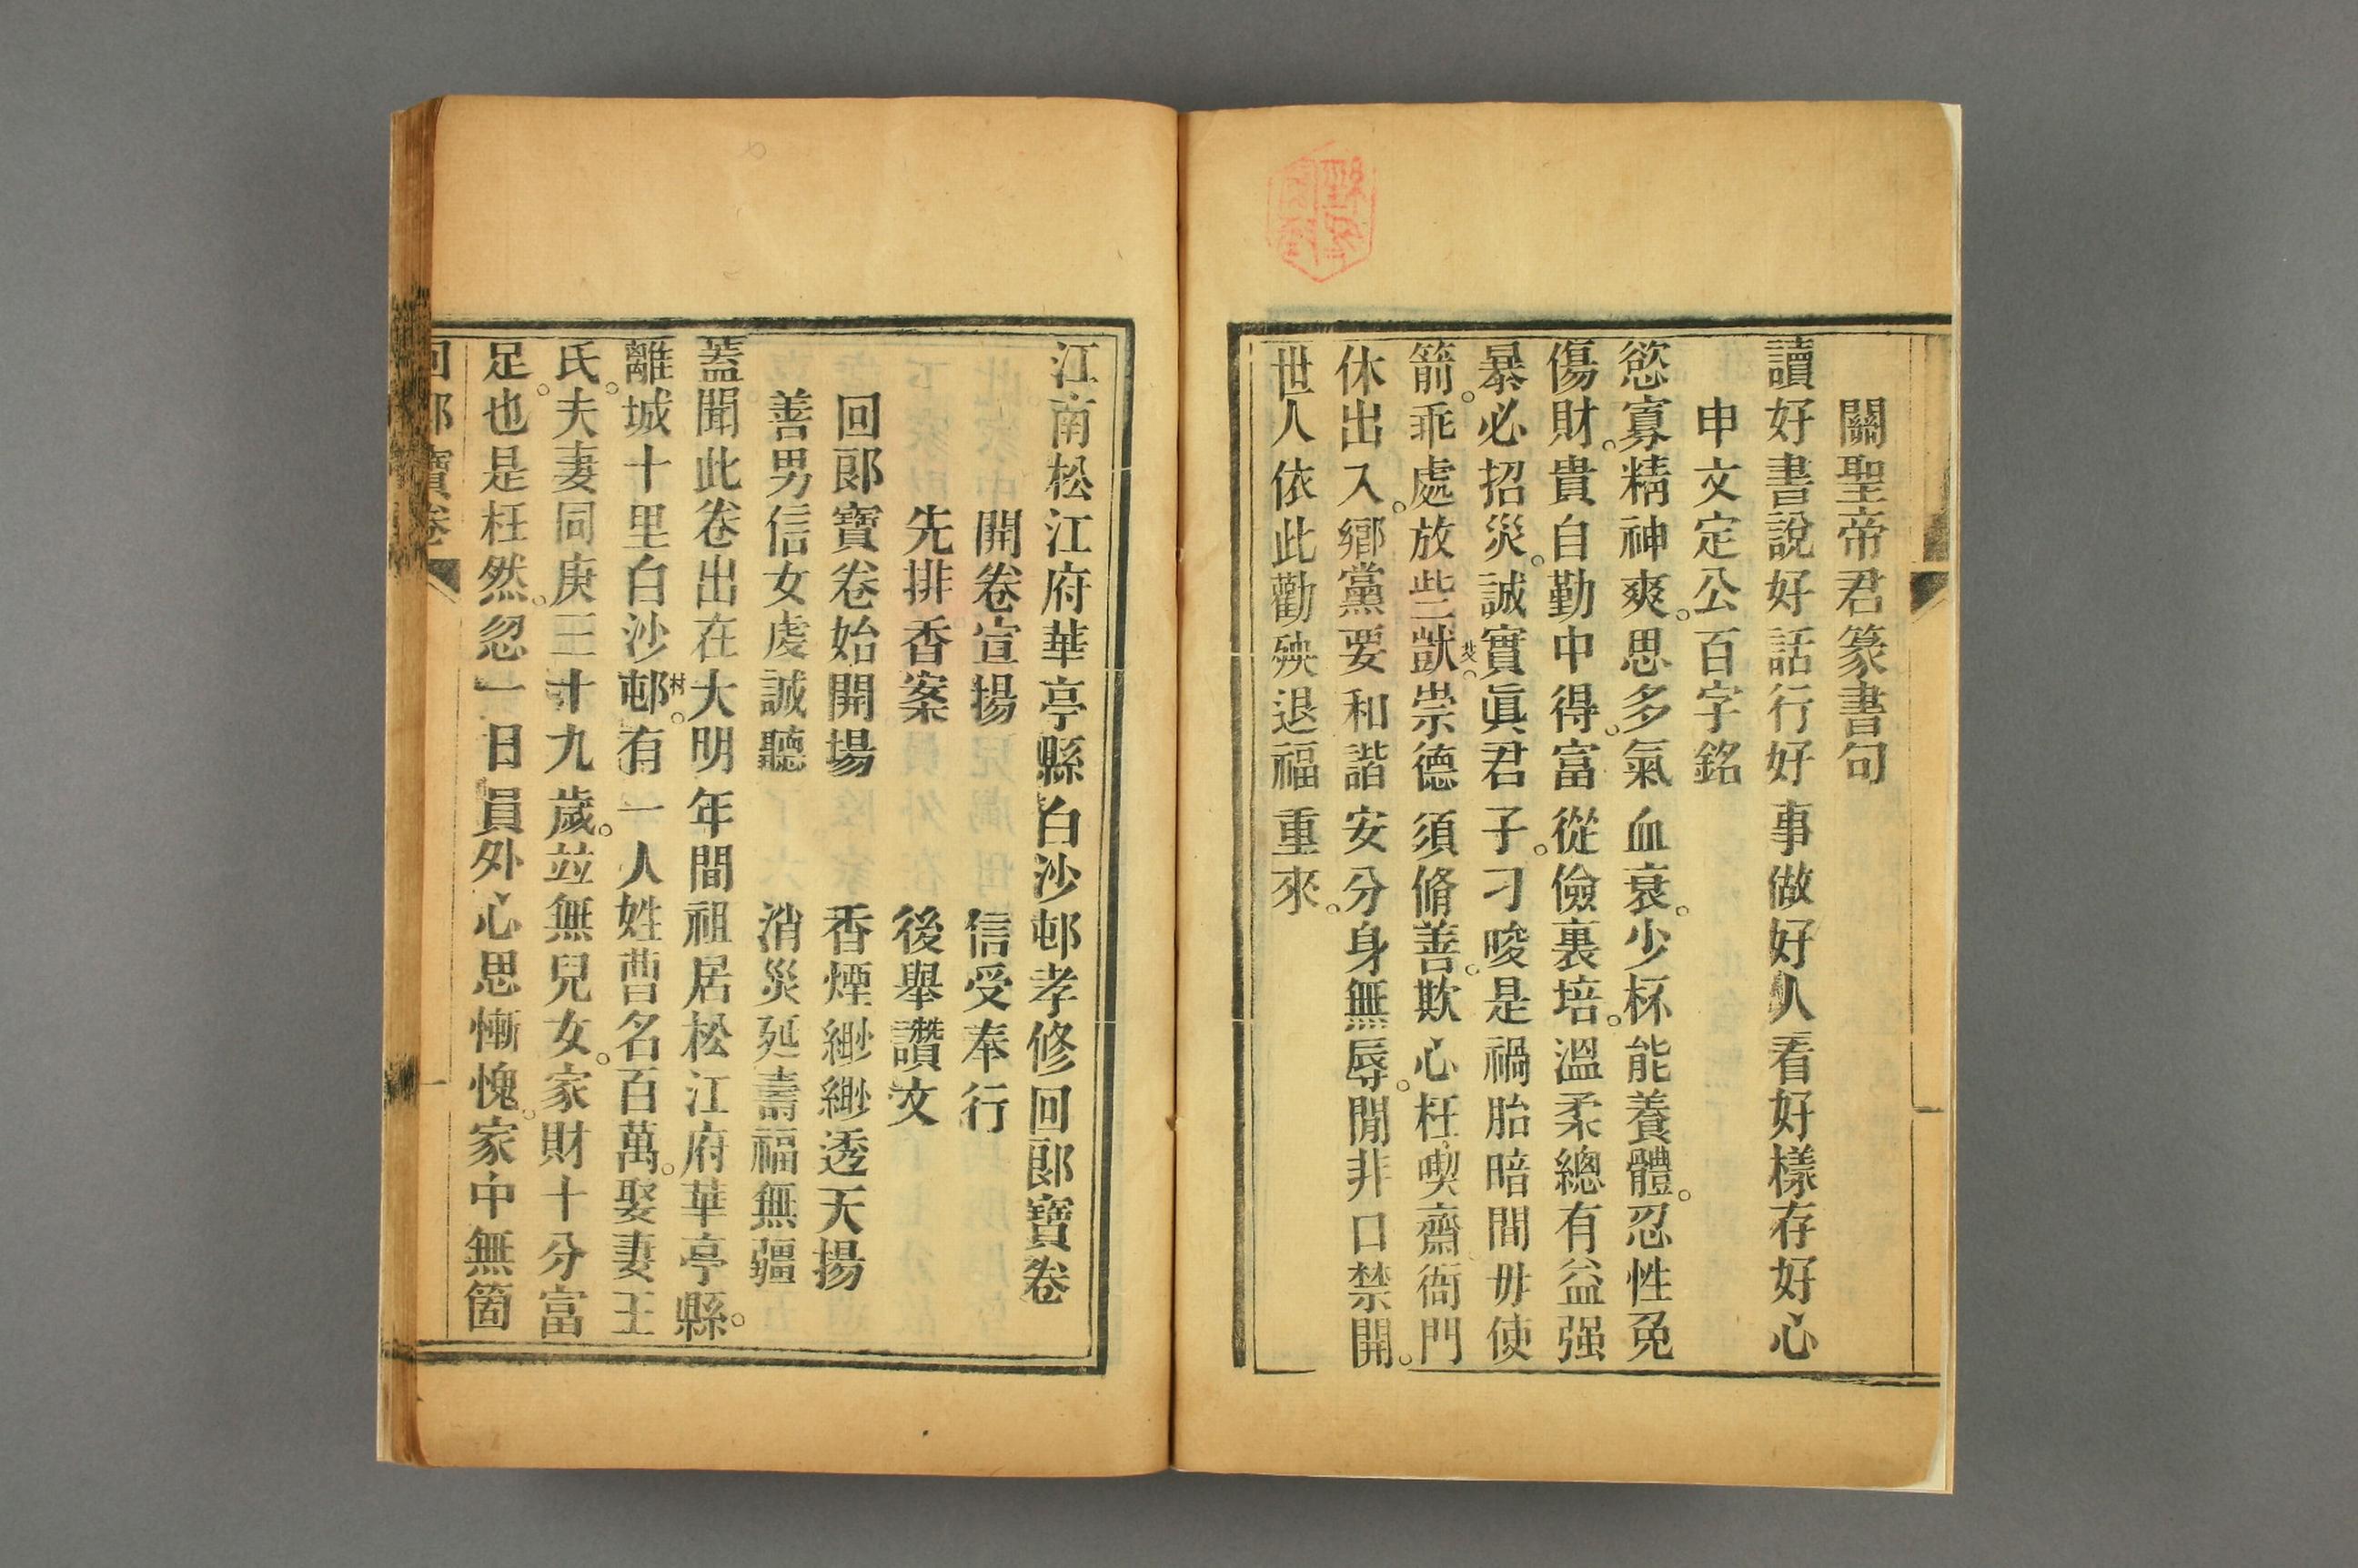 關聖帝君篆書句
讀好書說好話行好事做好人看好樣存好心
申文定公百字銘
慾寡精神爽。思多氣血衰。少杯能養體。忍性免
傷財。貴自勤中得。富從儉裏培。溫柔總有益强
暴必招災。誠實眞君子。刁唆是禍胎暗間毋使
箭。乖處放些獃。崇德須脩善。欺心枉喫齋。衙門
休出入。鄉黨要和諧安分身無辱。閒非口禁開。
世人依此勸殃退福重來。
江南松江府華亭縣白沙邨孝修回郞寶卷
開卷宣揚 信受奉行
先排香案 後舉讚文
回郞寶卷始開場 香煙緲緲透天揚
善男信女虔誠聽 消災延壽福無疆
蓋聞此卷出在大明年間祖居松江府華亭縣。
離城十里白沙邨村。有一人姓曹名百萬。娶妻王
氏。夫妻同庚三十九歲。竝無兒女。家財十分富
足。也是枉然。忽一日員外心思慚愧。家中無箇
回郞寶卷
一